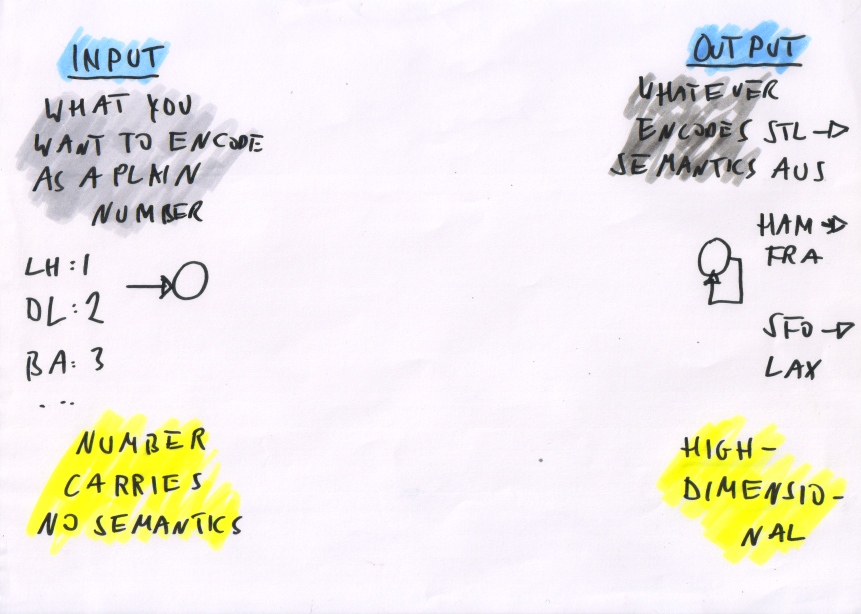 INPUT
WHAT YOU
WANT TO ENCODE
AS A PLAIN
NUMBER
LH:1
DL:2
BA:3
...
NUMBER
CARRIES
NO SEMANTICS
OUTPUT
WHATEVER
ENCODES STL →
SEMANTICS AUS
HAM →
FRA
SFO →
LAX
HIGH-
DIMENSIO-
NAL